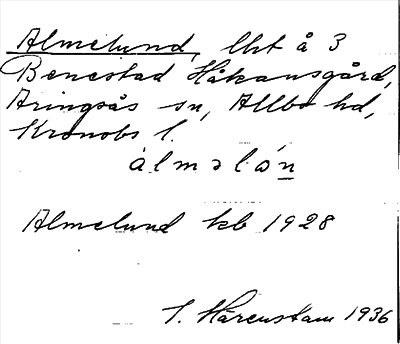 Almelund, lht å 3
Benestad Håkansgård,
Aringsås sn, Allbo hd,
Kronobs l.
álmalón
Almelund kb 1928
S. Hårenstam 1936